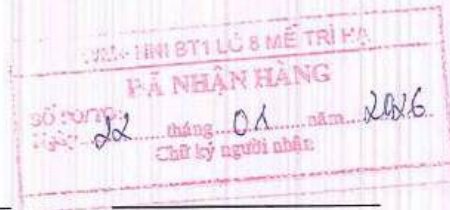 HNI BT1 LÔ 8 MỄ TRÌ HẠ
ĐÃ NHẬN HÀNG
SỐ
22 tháng 01 năm 2026
Chữ ký người nhận